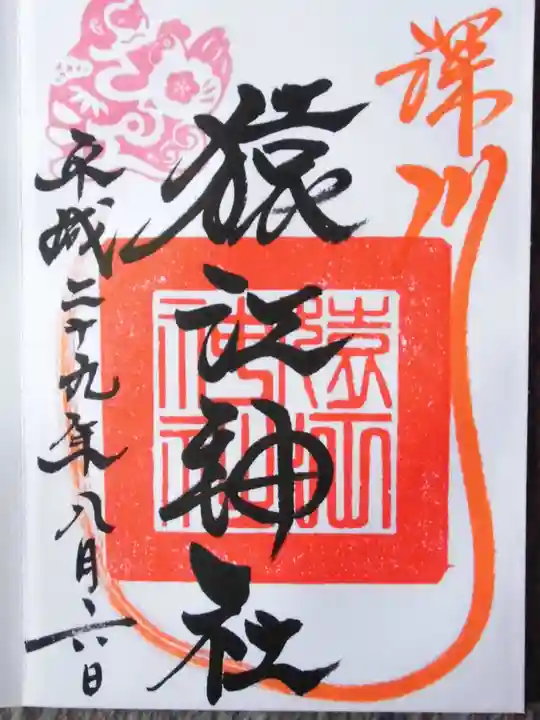 深川
猿江神社
平成二十九年八月六日
猿江神社